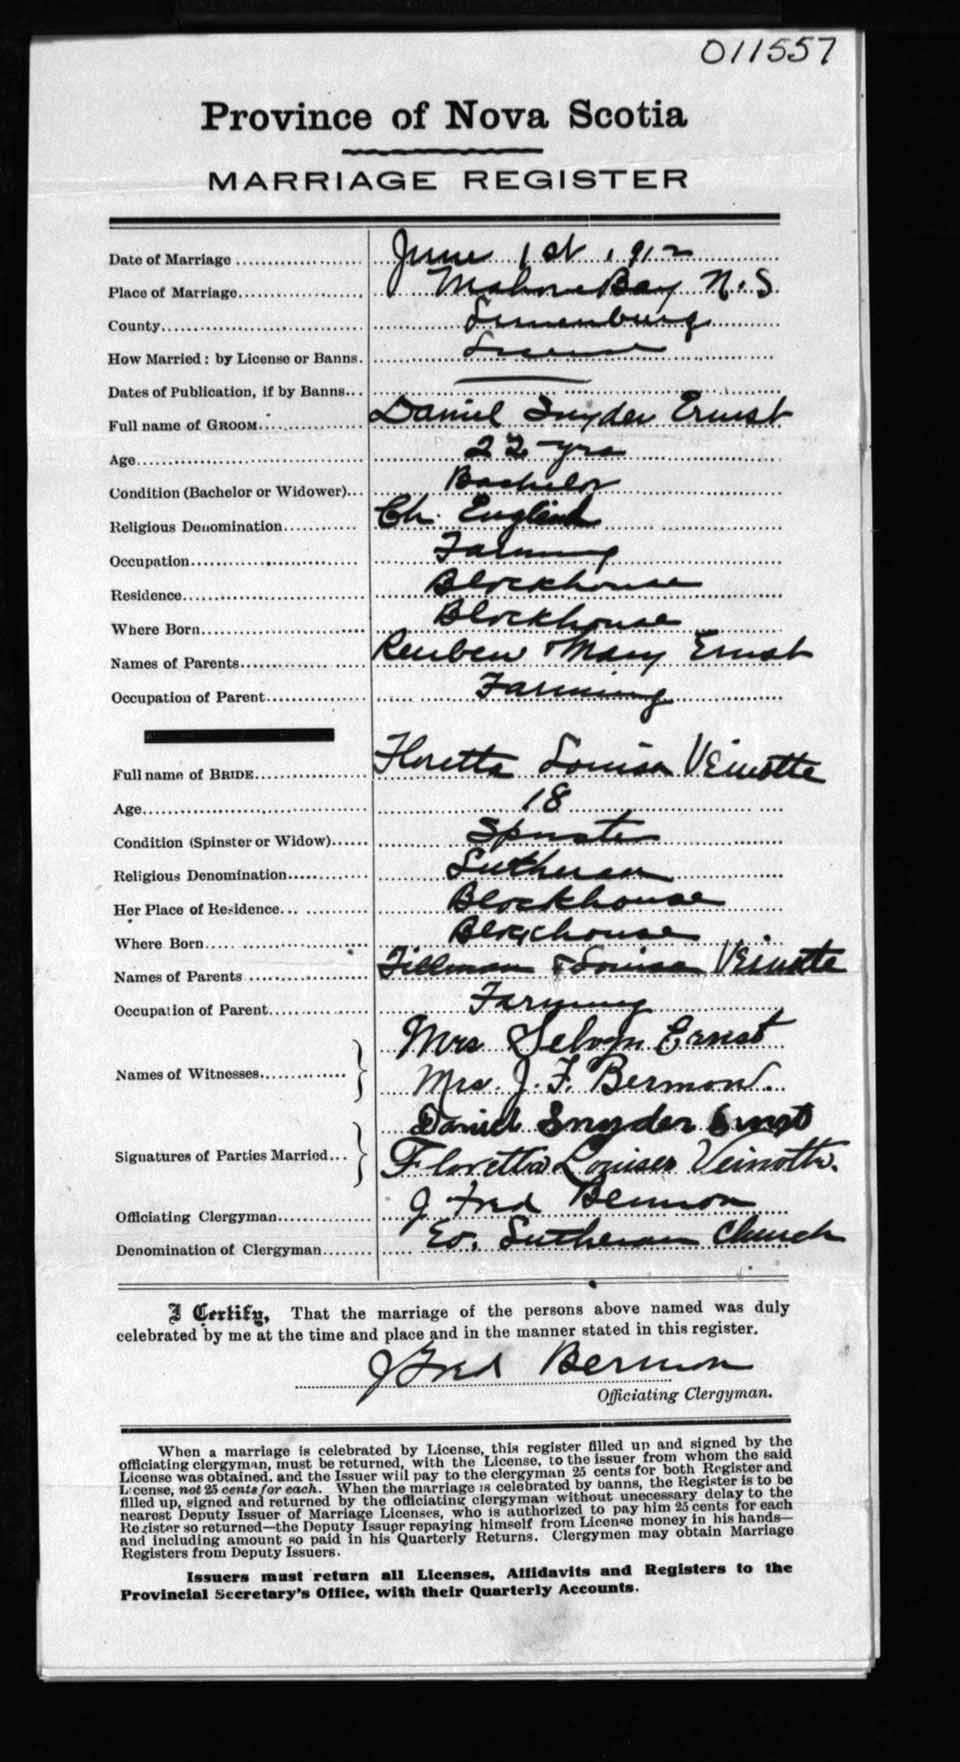 011557
Province of Nova Scotia
MARRIAGE REGISTER
Date of Marriage June 1st 1912
Place of Marriage Mahone Bay N.S
County Lunenburg
How Married: by License or Banns. License
Dates of Publication, if by Banns
Full name of GROOM Daniel Snyder Ernst
Age 22 yrs
Condition (Bachelor or Widower) Bachelor
Religious Denomination Ch. England
Occupation Farming
Residence Blockhouse
Where Born Blockhouse
Names of Parents Reuben & Mary Ernst
Occupation of Parent Farming
Full name of BRIDE Floretta Louisa Veinotte
Age 18
Condition (Spinster or Widow) Spinster
Religious Denomination Lutheran
Her Place of Residence Blockhouse
Where Born Blockhouse
Names of Parents Tillman & Louisa Veinotte
Occupation of Parent Farming
Mrs Selvyn Ernst
Names of Witnesses
Mrs. J. F. Bermon.
Daniel Snyder Ernst
Signatures of Parties Married
Floretta Louisa Veinotte.
Officiating Clergyman J Fred Bermon
Denomination of Clergyman Ev. Lutheran Church
I Certify, That the marriage of the persons above named was duly
celebrated by me at the time and place and in the manner stated in this register.
J Fred Bermon
Officiating Clergyman.
When a marriage is celebrated by License, this register filled up and signed by the
officiating clergyman, must be returned, with the License, to the issuer from whom the said
License was obtained, and the Issuer will pay to the clergyman 25 cents for both Register and
License, not 25 cents for each. When the marriage is celebrated by banns, the Register is to be
filled up, signed and returned by the officiating clergyman without unecessary delay to the
nearest Deputy Issuer of Marriage Licenses, who is authorized to pay him 25 cents for each
Register so returned—the Deputy Issuer repaying himself from License money in his hands—
and including amount so paid in his Quarterly Returns. Clergymen may obtain Marriage
Registers from Deputy Issuers.
Issuers must return all Licenses, Affidavits and Registers to the
Provincial Secretary's Office, with their Quarterly Accounts.